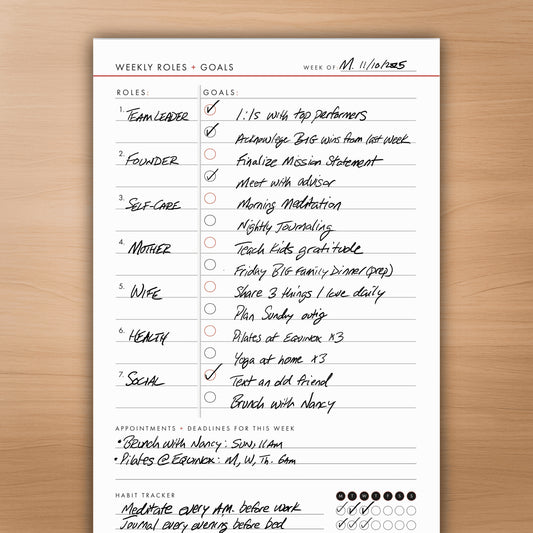 WEEKLY ROLES + GOALS WEEK OF: M. 11/10/2025
ROLES: GOALS:
1. TEAM LEADER 1:1s with top performers
Acknowlege BIG wins from last week
2. FOUNDER Finalize Mission Statement
Meet with advisor
3. SELF-CARE Morning Meditation
Nightly Journaling
4. MOTHER Teach Kids gratitude
Friday BIG Family Dinner (prep)
5. WIFE Share 3 things I love daily
Plan Sunday outig
6. HEALTH Pilates at EQUINOX x3
Yoga at home x3
7. SOCIAL Text an old friend
Brunch with Nancy
APPOINTMENTS + DEADLINES FOR THIS WEEK
• Brunch with Nancy: SUN, 11AM
• Pilates @ EQUINOX: M, W, Th. 6am
HABIT TRACKER M T W T F S S
Meditate every A.M. before work
Journal every evening before bed